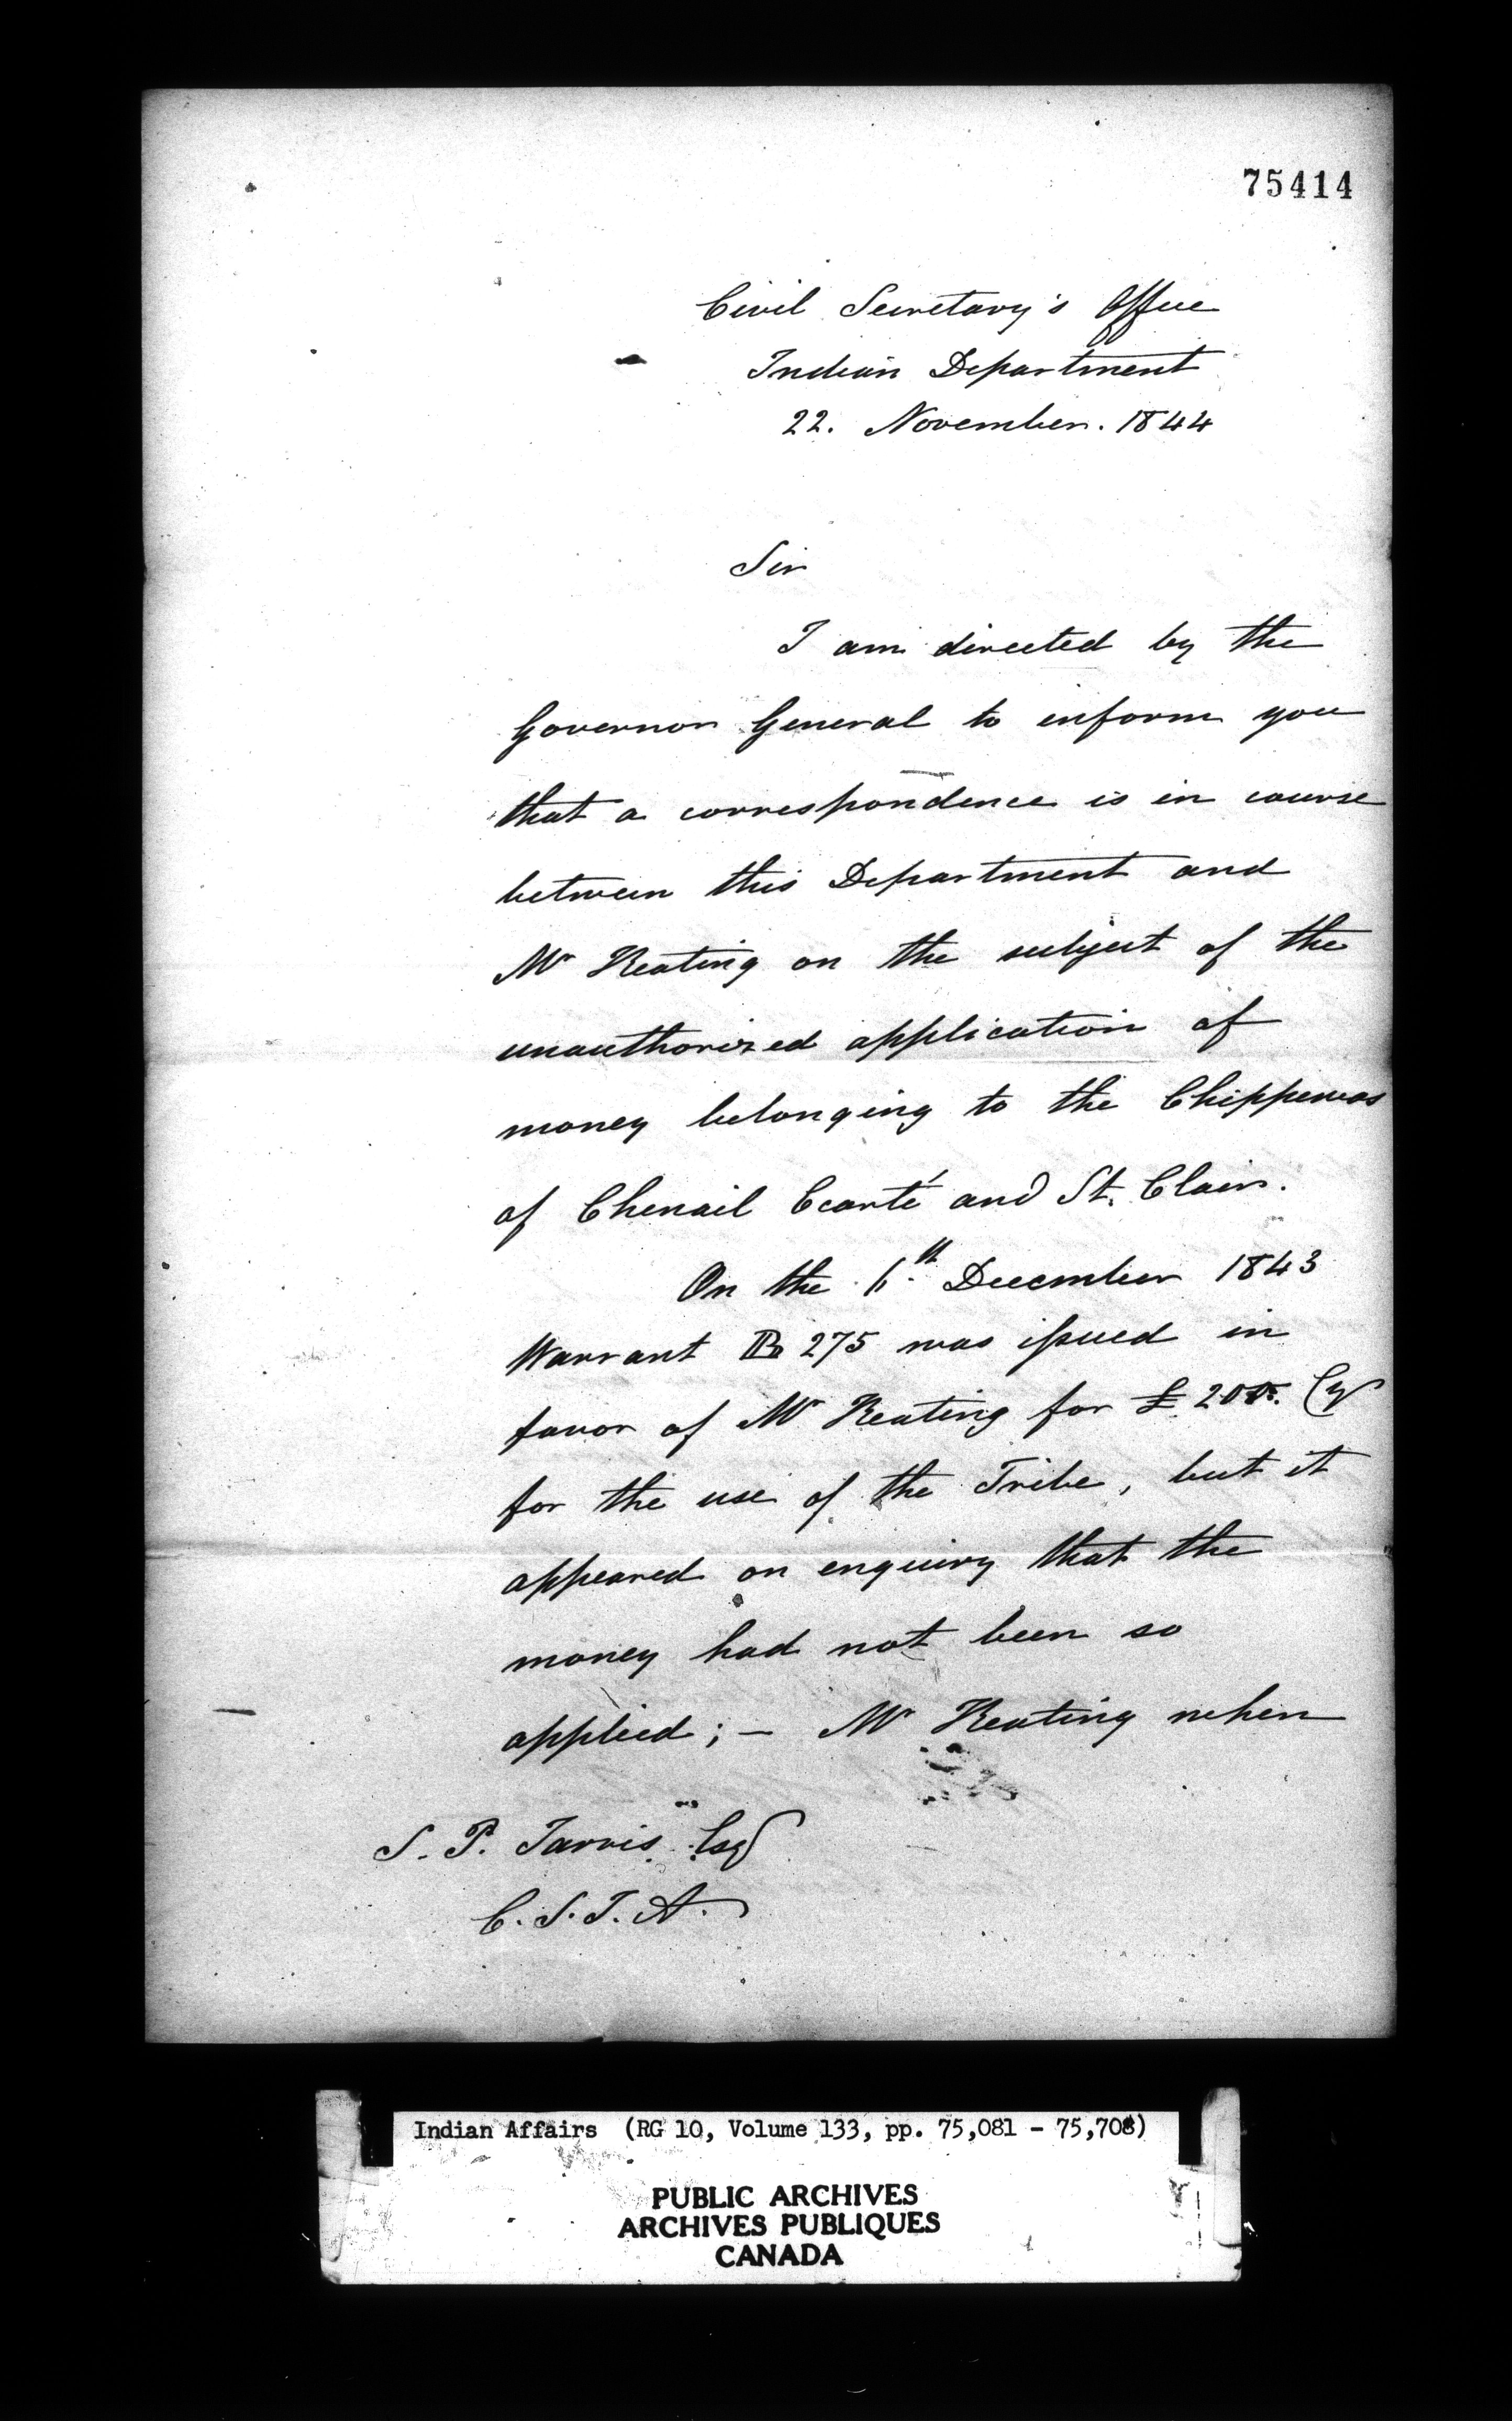 75414
Civil Secretary's Office
Indian Department
22. November. 1844
Sir
I am directed by the
Governor General to inform you
that a correspondence is in course
between this Department and
Mr Keating on the subject of the
unauthorized application of
money belonging to the Chippewas
of Chenail Ecarté and St. Clair.
On the December 1843
Warrant B 275 was issued in
favor of Mr Keating for £ Cy
for the use of the Tribe, but it
appeared on enquiry that the
money had not been so
applied; — Mr Keating when
S. P. Jarvis Esq
C. S. I. A.
Indian Affairs (RG 10, Volume 133, pp. 75,081 - 75,708)
PUBLIC ARCHIVES
ARCHIVES PUBLIQUES
CANADA